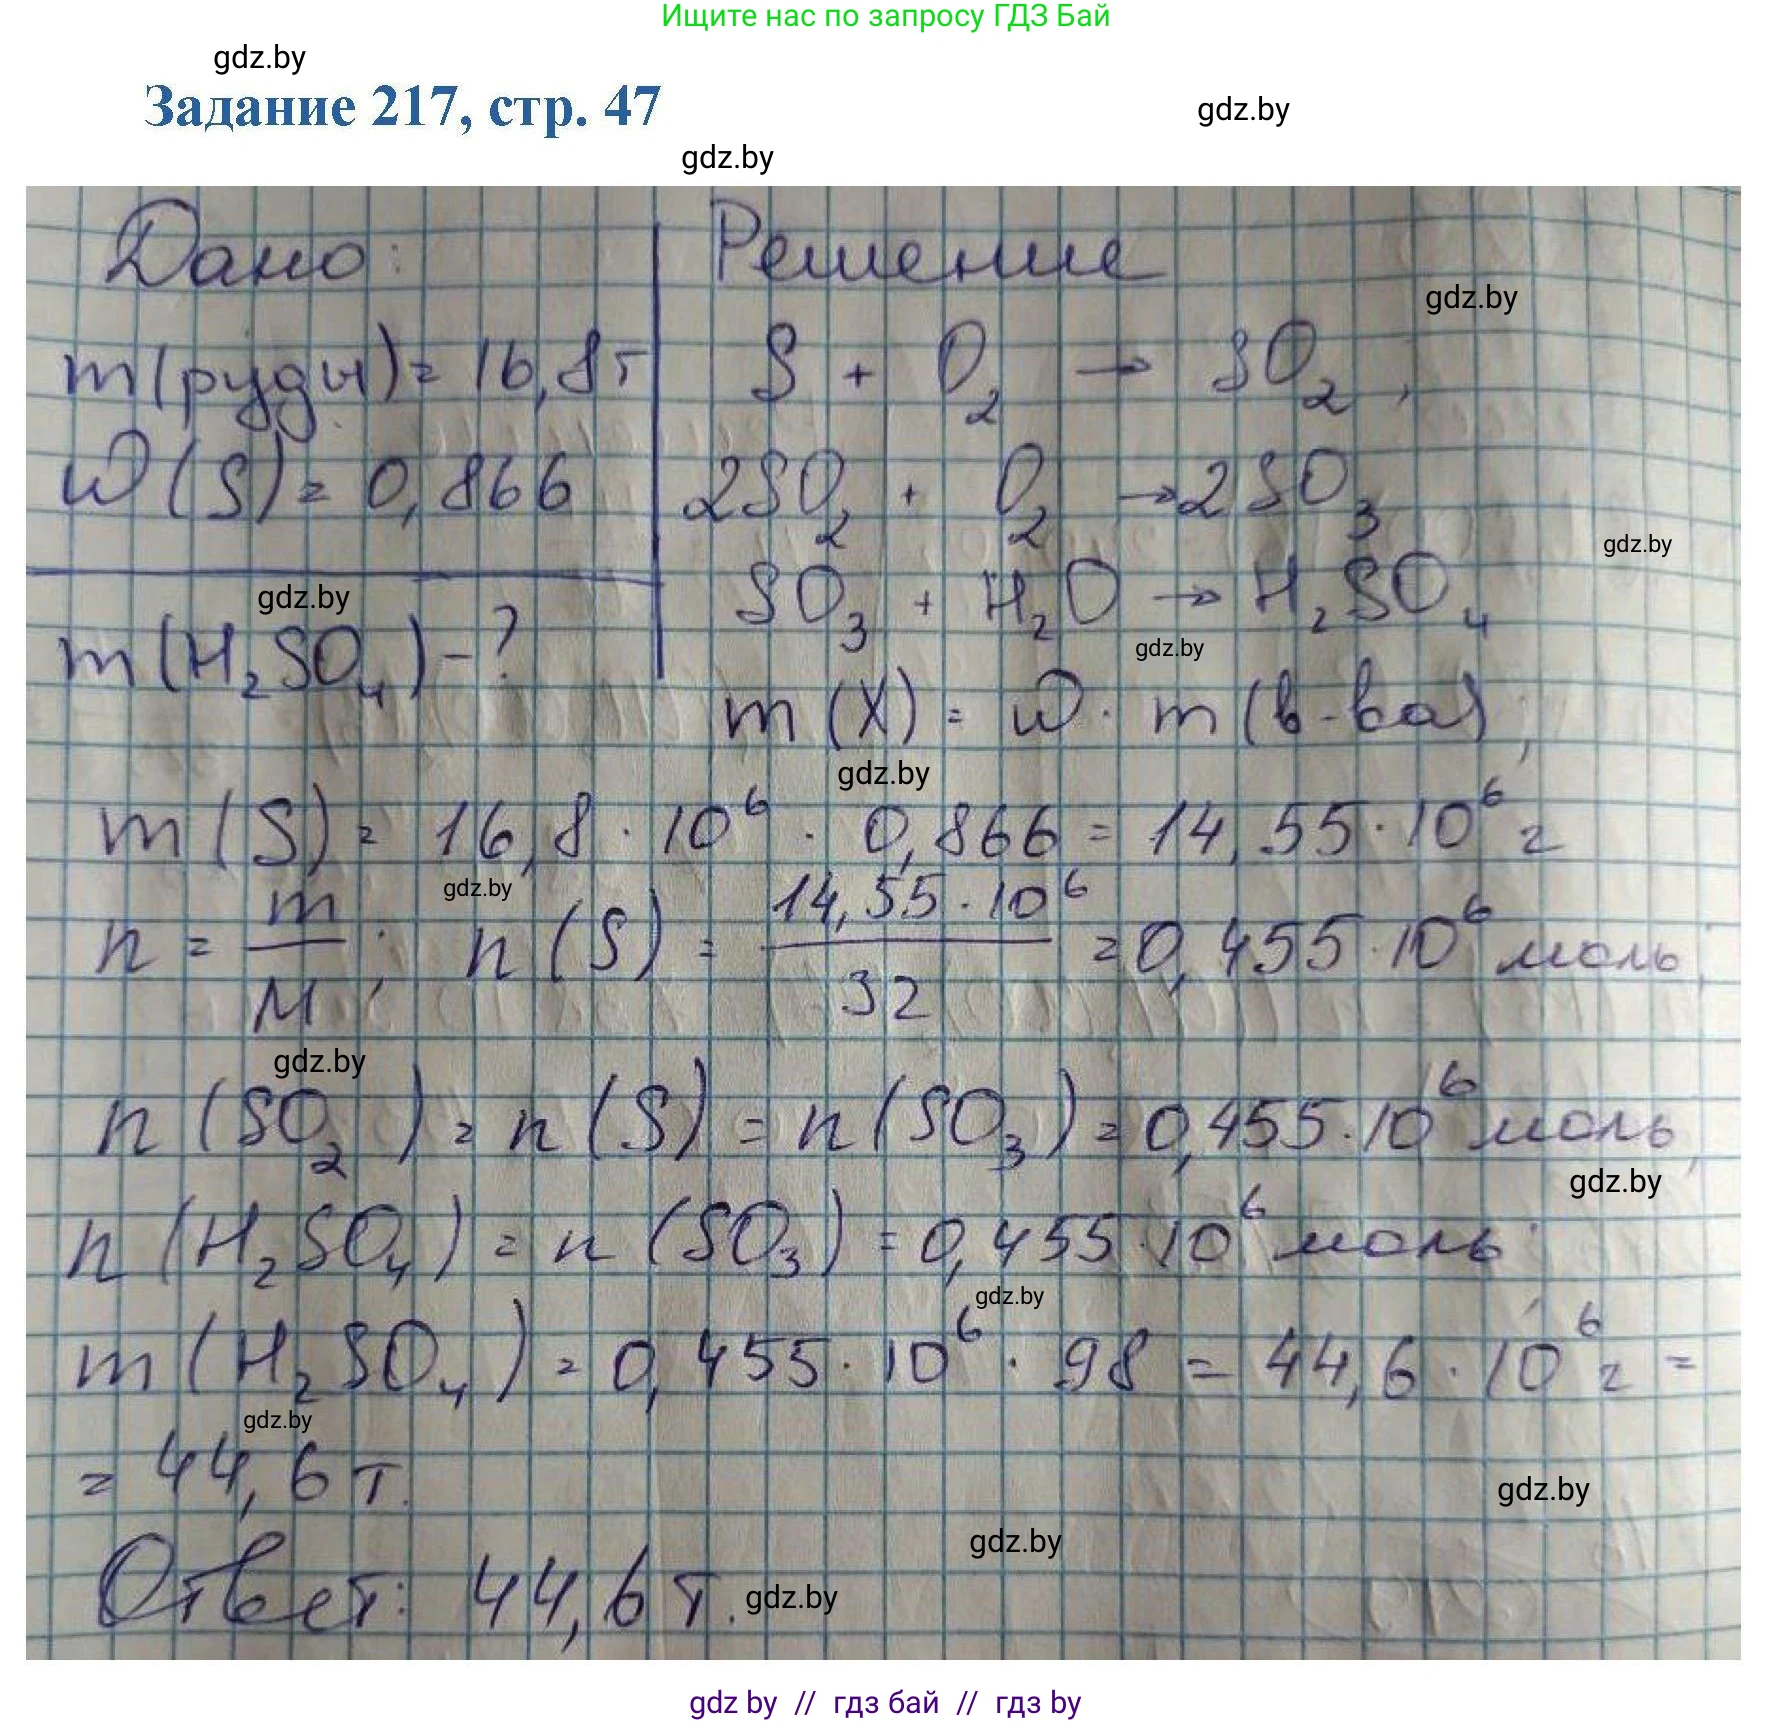 Ищите нас по запросу ГДЗ Бай
gdz.by
Задание 217, стр. 47
gdz.by
gdz.by
Дано:
Решение
gdz.by
m(руды) = 16,8т
S + O₂ → SO₂,
W(S) = 0,866
2SO₂ + O₂ → 2SO₃
gdz.by
gdz.by
SO₃ + H₂O → H₂SO₄
m(H₂SO₄) - ?
gdz.by
m(X) = W · m(в-ва);
gdz.by
m(S) = 16,8 · 10⁶ · 0,866 = 14,55 · 10⁶ г
gdz.by
n = m/M; n(S) = 14,55 · 10⁶/32 = 0,455 · 10⁶ моль;
gdz.by
n(SO₂) = n(S) = n(SO₃) = 0,455 · 10⁶ моль,
gdz.by
n(H₂SO₄) = n(SO₃) = 0,455 · 10⁶ моль;
gdz.by
m(H₂SO₄) = 0,455 · 10⁶ · 98 = 44,6 · 10⁶ г =
gdz.by
= 44,6 т.
gdz.by
gdz.by
Ответ: 44,6 т.
gdz.by
gdz by // гдз бай // гдз by